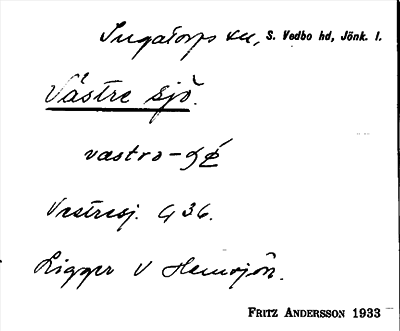 Ingatorps sn, S. Vedbo hd, Jönk. l.
Västre sjö.
västrə-
Vestresj. G 36.
Ligger V Hemsjön.
FRITZ ANDERSSON 1933